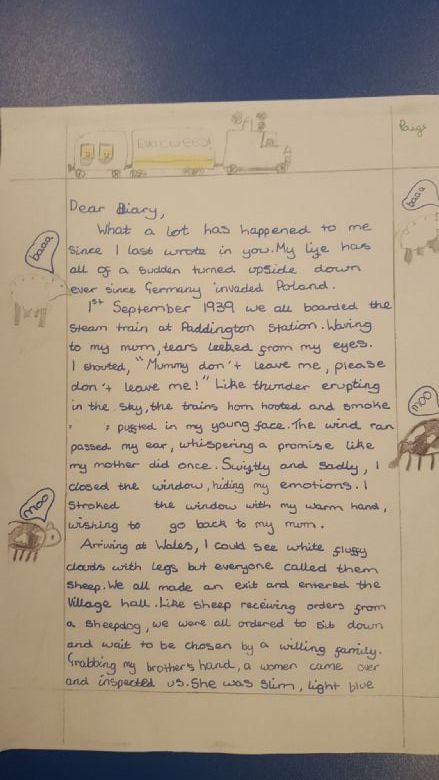 EVACUEES!
Paige
Dear Diary,
What a lot has happened to me
since I last wrote in you. My life has
all of a sudden turned upside down
ever since Germany invaded Poland.
1st September 1939 we all boarded the
steam train at Paddington Station. Waving
to my mum, tears leeked from my eyes.
I shouted, "Mummy don't leave me, please
don't leave me!" Like thunder erupting
in the sky, the trains horn hooted and smoke
puffed in my young face. The wind ran
passed my ear, whispering a promise like
my mother did once. Swiftly and sadly, I
closed the window, hiding my emotions. I
stroked the window with my warm hand,
wishing to go back to my mum.
Arriving at Wales, I could see white fluffy
clouds with legs but everyone called them
sheep. We all made an exit and entered the
village hall. Like sheep receiving orders from
a sheepdog, we were all ordered to sit down
and wait to be chosen by a willing family.
Grabbing my brother's hand, a women came over
and inspected us. She was slim, light blue
baaa
moo
baaa
moo